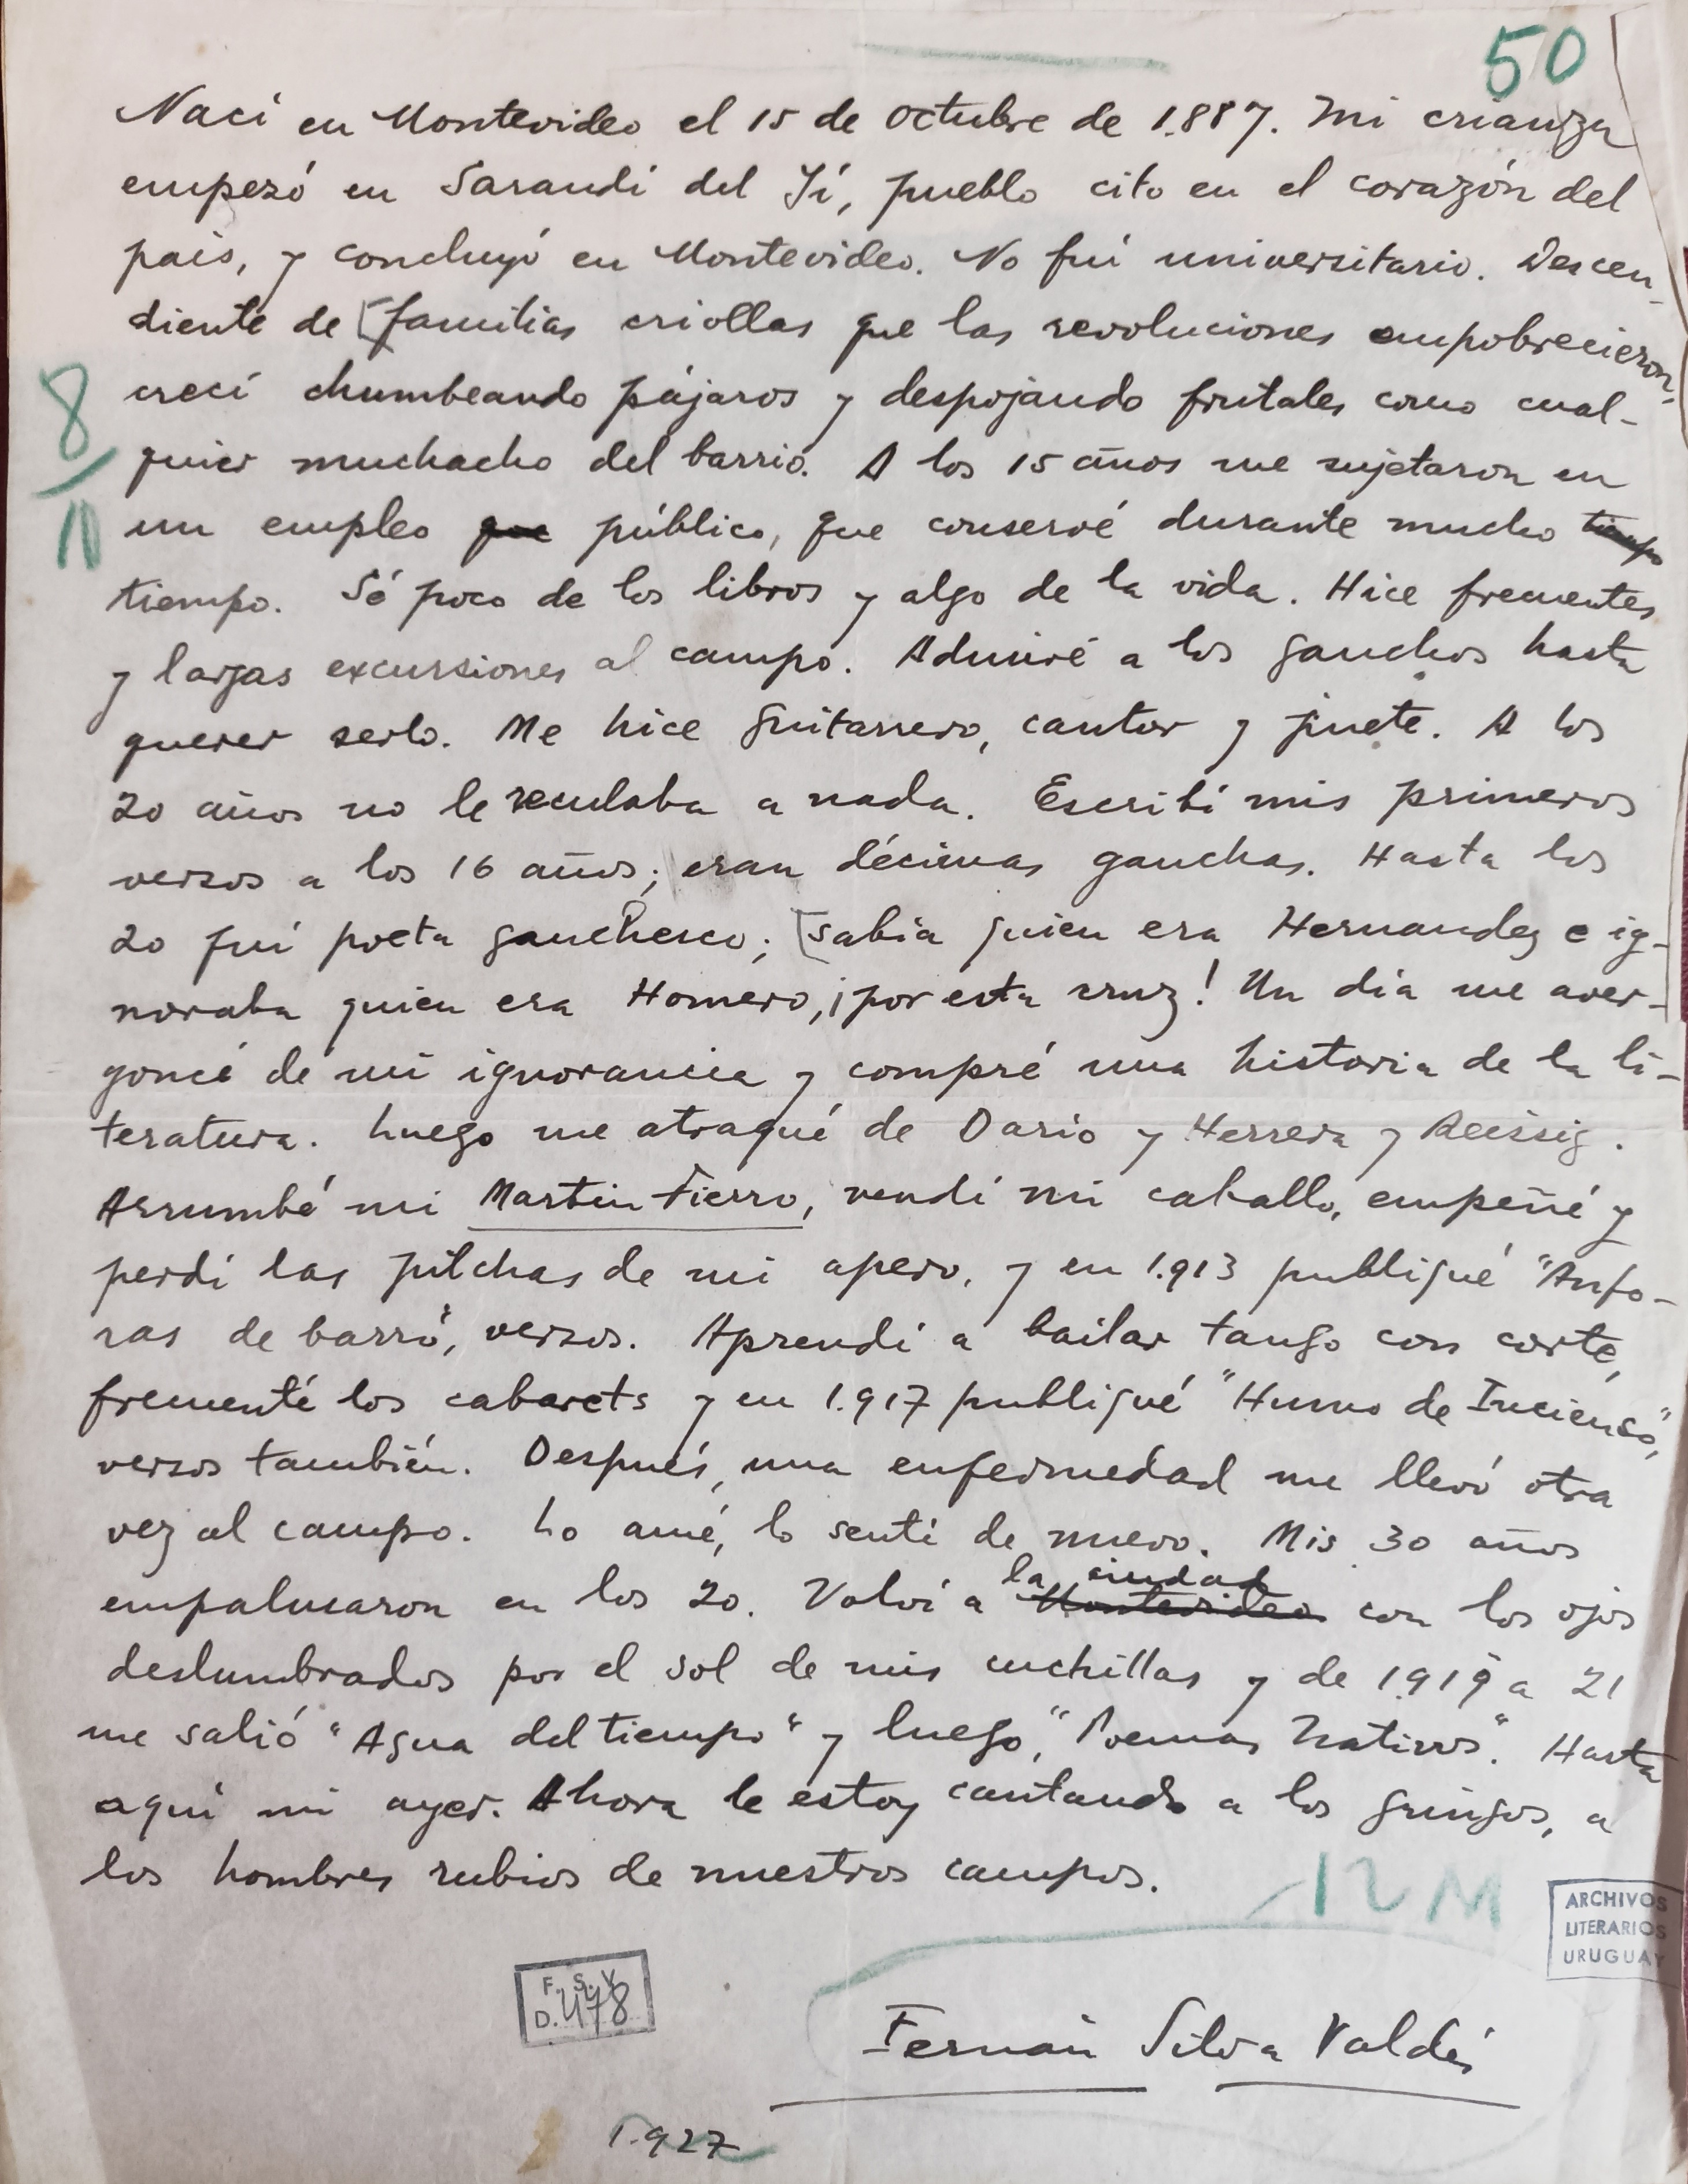 50
Nací en Montevideo el 15 de Octubre de 1.887. Mi crianza
empezó en Sarandí del Yí, pueblo cito en el corazón del
pais, y concluyó en Montevideo. No fuí universitario. Descen-
diente de [familias criollas que las revoluciones empobrecieron,
crecí chumbeando pájaros y despojando frutales como cual-
quier muchacho del barrio. A los 15 años me sujetaron en
un empleo que público, que conservé durante mucho tiempo
tiempo. Sé poco de los libros y algo de la vida. Hice frecuentes
y largas excursiones al campo. Admiré a los gauchos hasta
querer serlo. Me hice guitarrero, cantor y jinete. A los
20 años no le reculaba a nada. Escribí mis primeros
versos a los 16 años; eran décimas gauchas. Hasta los
20 fuí poeta gauchesco; [sabia quien era Hernandez e ig-
noraba quien era Homero, ¡por esta cruz! Un dia me aver-
goncé de mi ignorancia y compré una historia de la li-
teratura. Luego me atraqué de Dario y Herrera y Reissig.
Arrumbé mi Martin Fierro, vendí mi caballo, empeñé y
perdí las pilchas de mi apero, y en 1.913 publiqué "Anfo-
ras de barro", versos. Aprendí a bailar tango con corte,
frecuenté los cabarets y en 1.917 publiqué "Humo de Incienso",
versos también. Después, una enfermedad me llevó otra
vez al campo. Lo amé, lo sentí de nuevo. Mis 30 años
la ciudad
empalmaron en los 20. Volví a Montevideo con los ojos
deslumbrados por el sol de mis cuchillas y de 1919 a 21
me salió "Agua del tiempo" y luego, "Poemas Nativos". Hasta
aquí mi ayer. Ahora le estoy cantando a los gringos, a
los hombres rubios de nuestros campos.
8
11
12 M
ARCHIVOS
LITERARIOS
URUGUAY
F. S. V.
D. 478
Fernán Silva Valdés
1.927